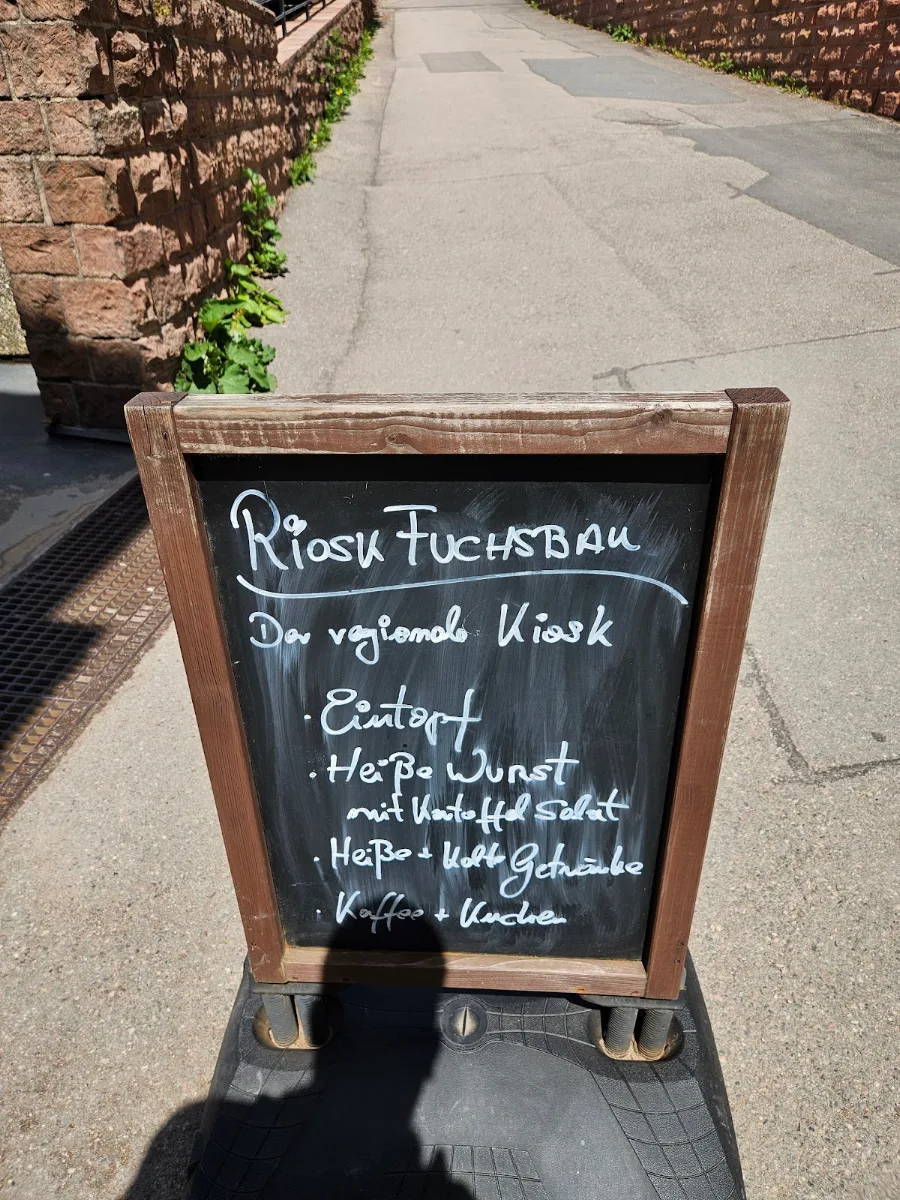 Kiosk FUCHSBAU
Der regionale Kiosk
· Eintopf
· Heiße Wurst
mit Kartoffel Salat
· Heiße + Kalte Getränke
· Kaffee + Kuchen